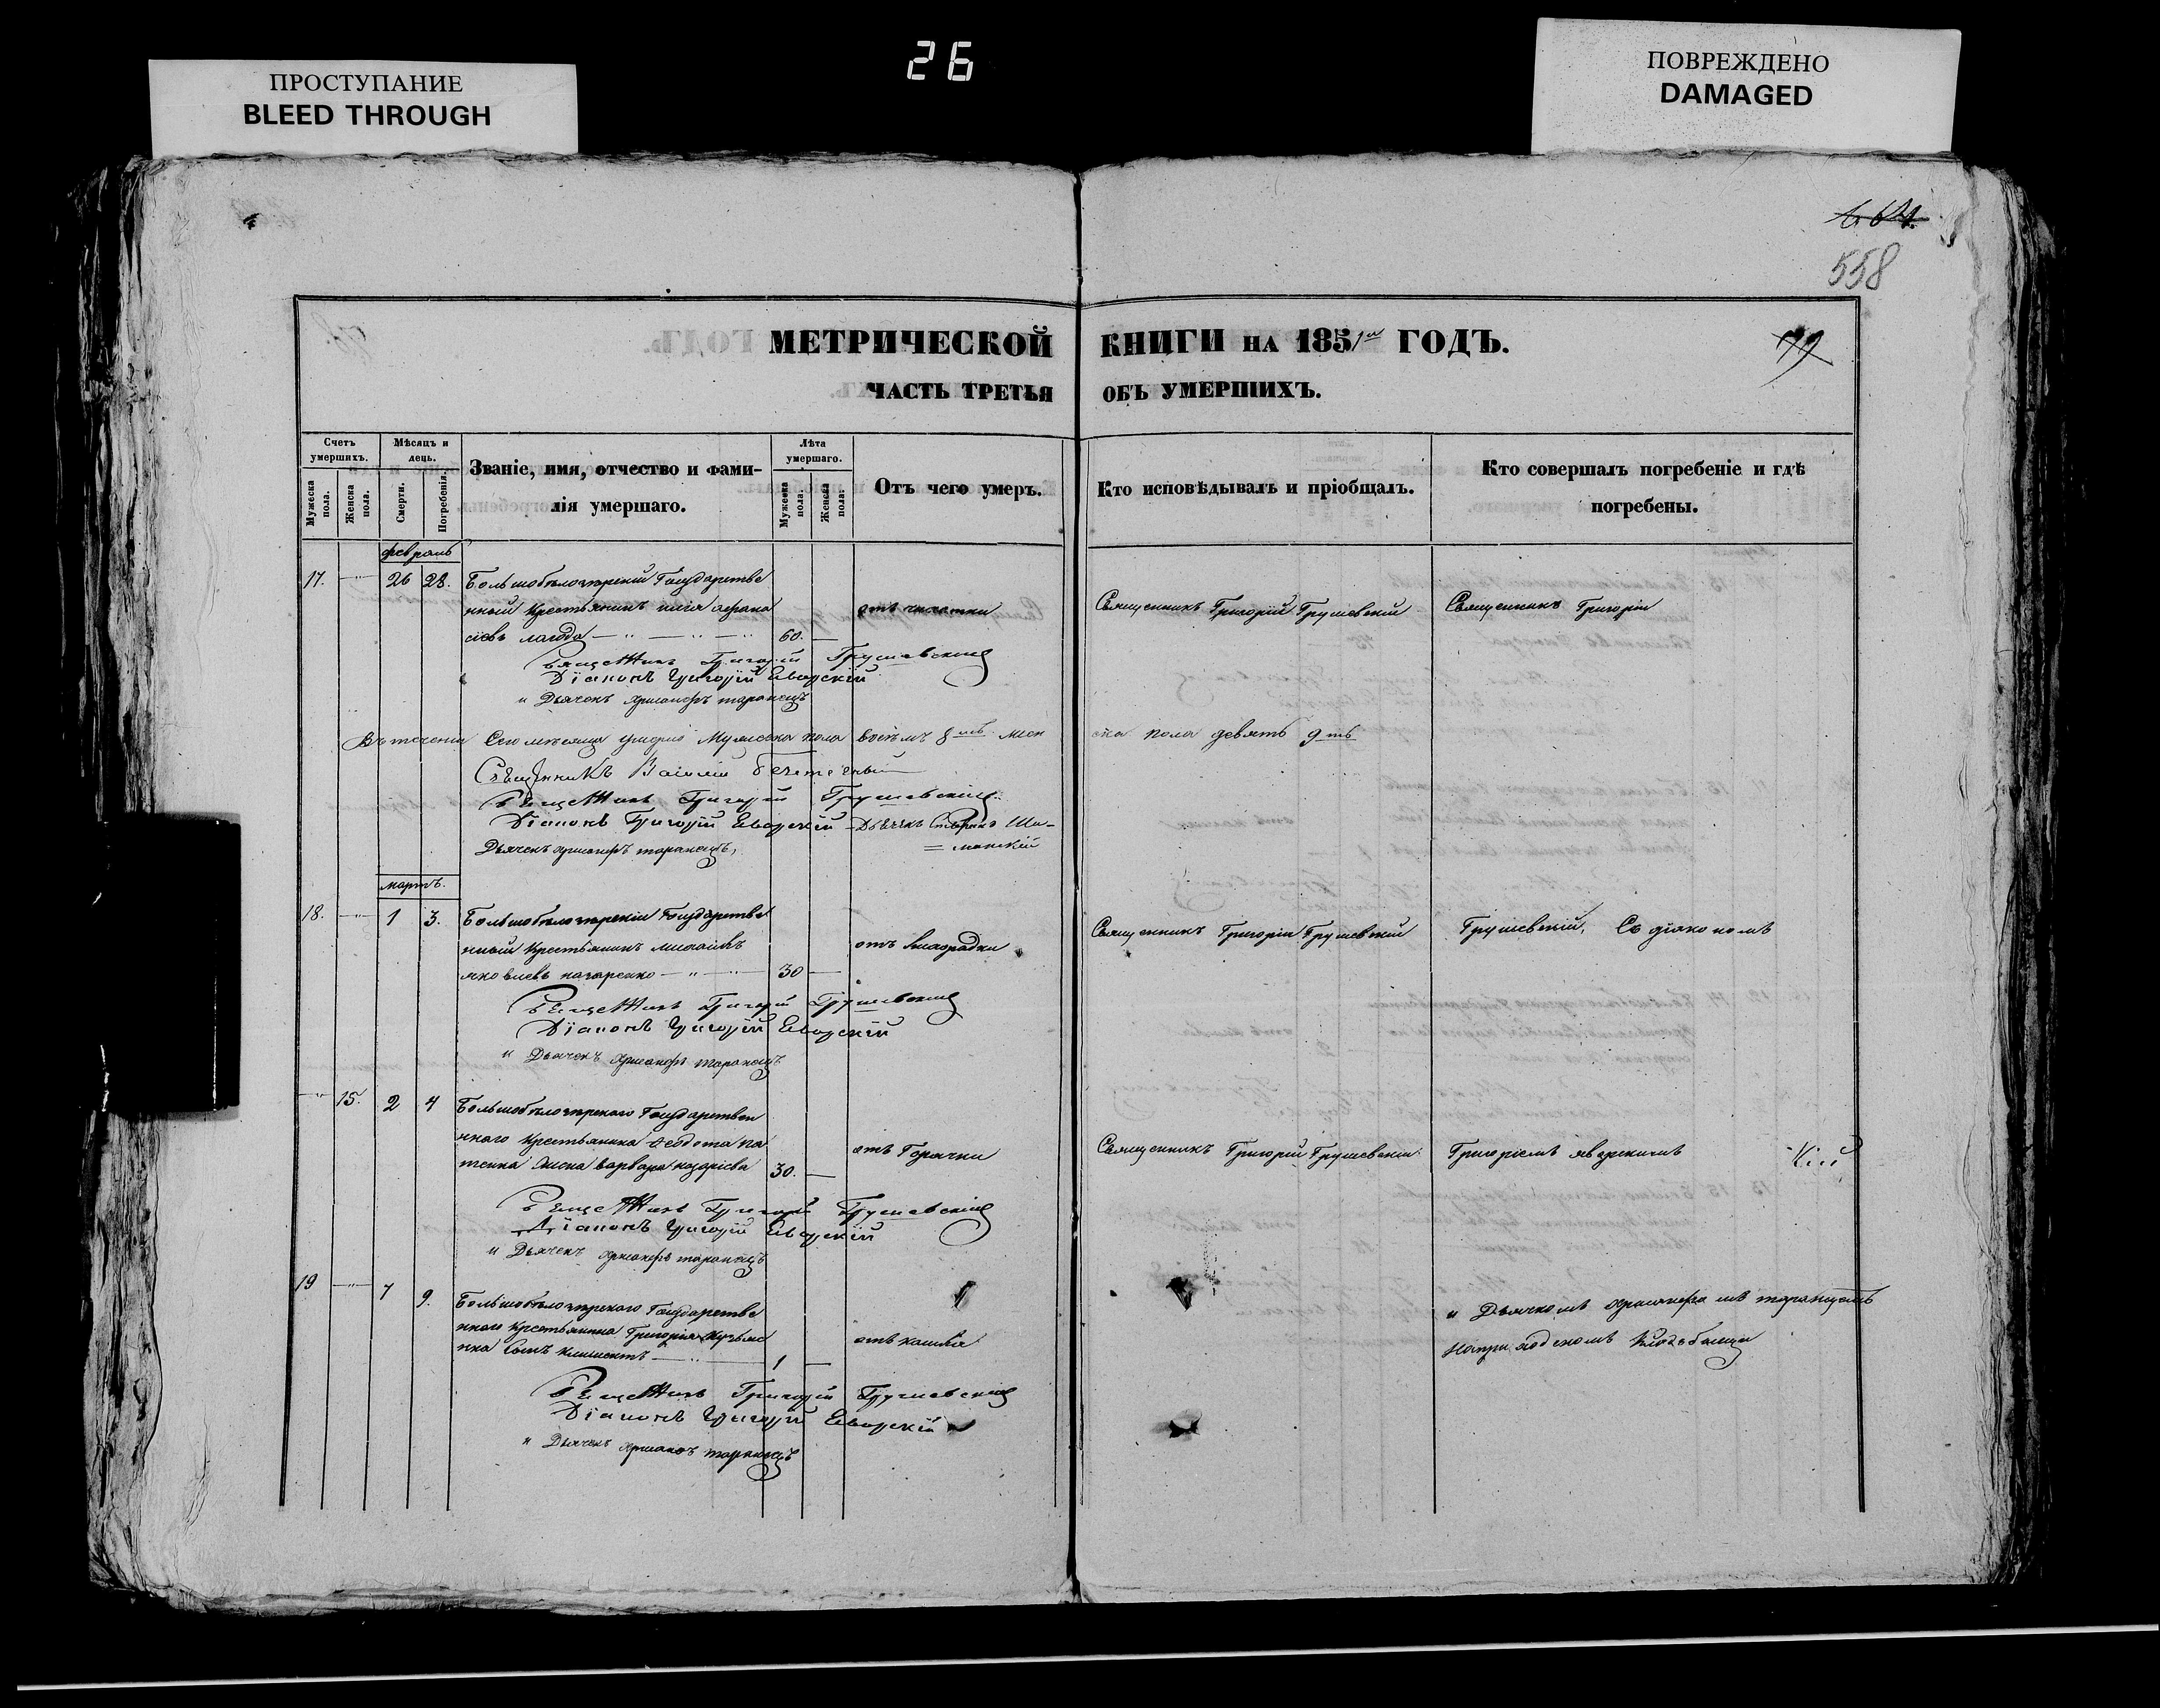 26
ПРОСТУПАНИЕ
BLEED THROUGH
ПОВРЕЖДЕНО
DAMAGED
558
МЕТРИЧЕСКОЙ КНИГИ НА 1851го ГОДЪ.
ЧАСТЬ ТРЕТЬЯ ОБЪ УМЕРШИХЪ.
Счетъ умершихъ.
Мужеска пола.
Женска пола.
Мѣсяцъ и день.
Смерти.
Погребенія.
Званіе, имя, отчество и фами-
лія умершаго.
Лѣта умершаго.
Мужеска пола.
Женска пола.
Отъ чего умеръ.
Кто исповѣдывалъ и пріобщалъ.
Кто совершалъ погребеніе и гдѣ
погребены.
февраль
17. 26 28. Большобѣлозерскій Государстве
нный Крестьянинъ илія афана
сіевъ лагода 60. отъ чахотки Священникъ Григорій Грушевскій Священникъ Григорій
Священникъ Григорій Грушевскій
Діаконъ Григорій Яворскій
и Дьячекъ Хрисанфъ таранецъ
Въ теченіи Сего мѣсяца умерло Мужеска пола восемъ 8мъ женска пола девять 9ть
Священникъ Василій
Священникъ Григорій Грушевскій
Діаконъ Григорій Яворскій Дьячекъ
Дьячекъ Хрисанфъ таранецъ,
мартъ.
18. 1 3. Большобѣлозерскій Государстве
нный Крестьянинъ михаилъ
яковлевъ назаренко 30 отъ лихорадки Священникъ Григорій Грушевскій Грушевскій, Съ діакономъ
Священникъ Григорій Грушевскій
Діаконъ Григорій Яворскій
и Дьячекъ Хрисанфъ таранецъ
15. 2 4 Большобѣлозерскаго Государствен
наго Крестьянина Ѳеодота
жена варвара назарієва 30. отъ Горячки Священникъ Григорій Грушевскій Григоріемъ яворскимъ
Священникъ Григорій Грушевскій
Діаконъ Григорій Яворскій
и Дьячекъ Хрисанфъ таранецъ
19 7 9. Большобѣлозерскаго Государстве
ннаго Крестьянина Григорія
сынъ климентъ 1 отъ кашля
и Дьячкомъ Хрисанфомъ таранцомъ
на приходскомъ кладбищи
Священникъ Григорій Грушевскій
Діаконъ Григорій Яворскій
и Дьячекъ Хрисанфъ таранецъ